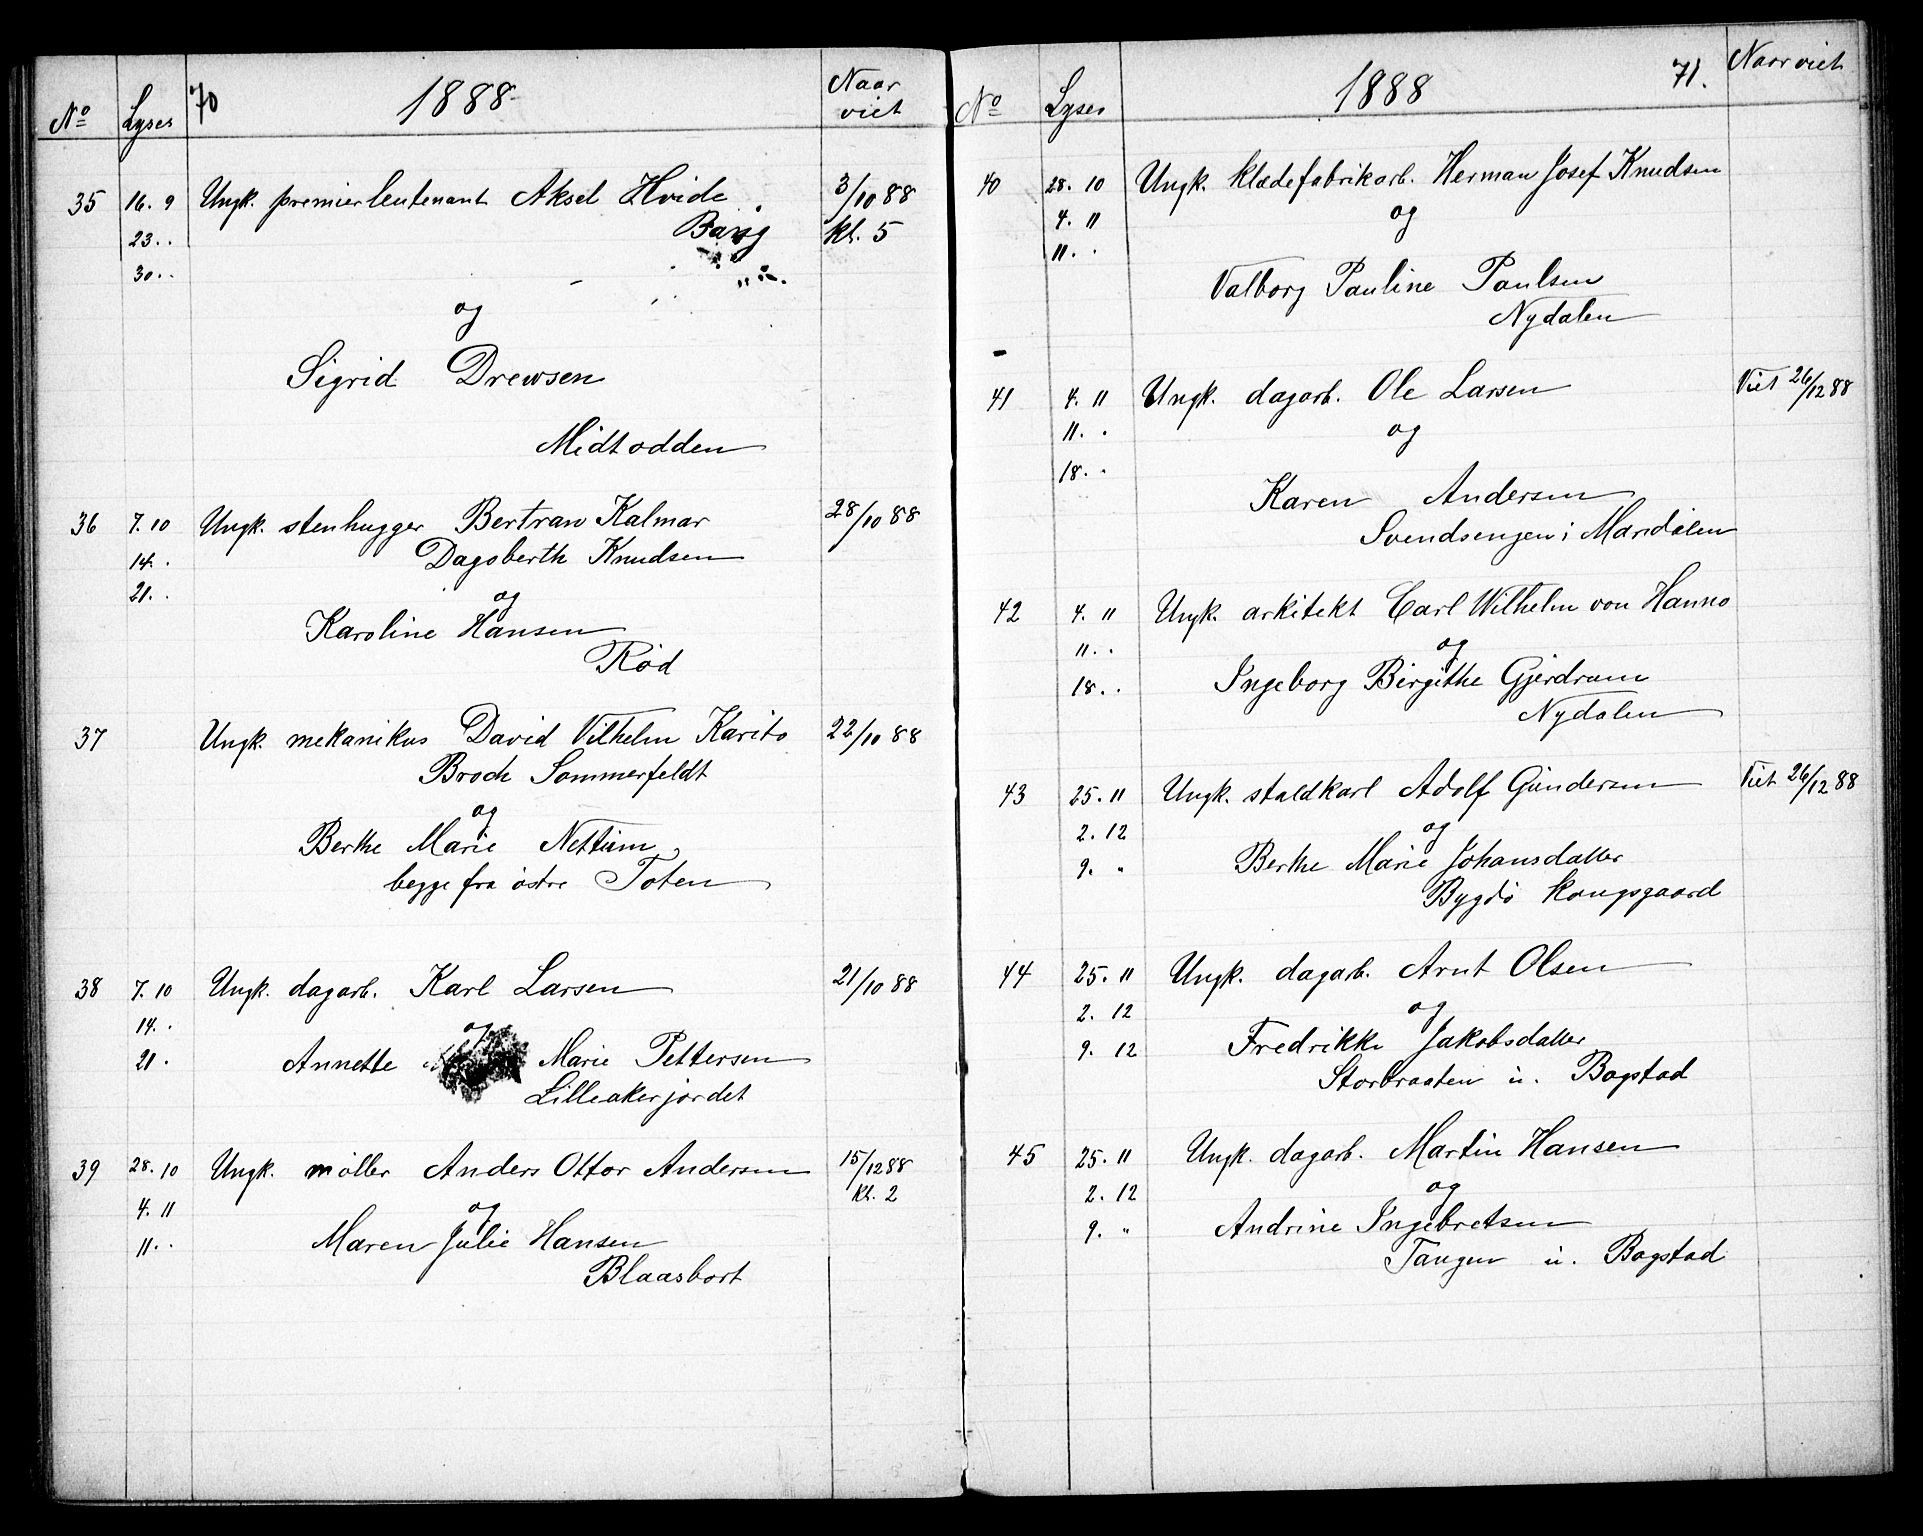 No Lyses 70 1888 Naar viet
35 16. 9 Ungk. premierleutenant Aksel Hvide 3/10 88
23. . Bang kl. 5
30. .
og
Sigrid Drewsen
Midtodden
36 7. 10 Ungk. stenhugger Bertran Kalmar 28/10 88
14. . Dagsberth Knudsen
21. . og
Karoline Hansen
Röd
37 Ungk. mekanikus David Vilhelm Karito 22/10 88
Broch Sommerfeldt
og
Berthe Marie Nettum
begge fra östre Toten
38 7. 10 Ungk. dagarb. Karl Larsen 21/10 88
14. . og
21. Annette Marie Pettersen
Lilleakerjordet
39 28. 10 Ungk. möller Anders Ottar Andersen 15/12 88
4. 11 og kl. 2
11. . Maren Julie Hansen
Blaasbort
No Lyses 1888 71. Naar viet
40 28. 10 Ungk. klædefabrikarb. Herman Josef Knudsen
4. 11 og
11. .
Valborg Pauline Paulsen
Nydalen
41 4. 11 Ungk. dagarb. Ole Larsen Viet 26/12 88
11. . og
18. .
Karen Andersen
Svendsengen i Maridalen
42 4. 11 Ungk. arkitekt Carl Wilhelm von Hanno
11. . og
18. . Ingeborg Birgithe Gjerdrum
Nydalen
43 25. 11 Ungk. staldkarl Adolf Gundersen Viet 26/12 88
2. 12 og
9. " Berthe Marie Johansdatter
Bygdö Kongsgaard
44 25. 11 Ungk. dagarb. Arnt Olsen
2. 12 og
9. 12 Fredrikke Jakobsdatter
Storbraaten u. Bogstad
45 25. 11 Ungk. dagarb. Martin Hansen
2. 12 og
9. " Andrine Ingebretsen
Tangen u. Bogstad